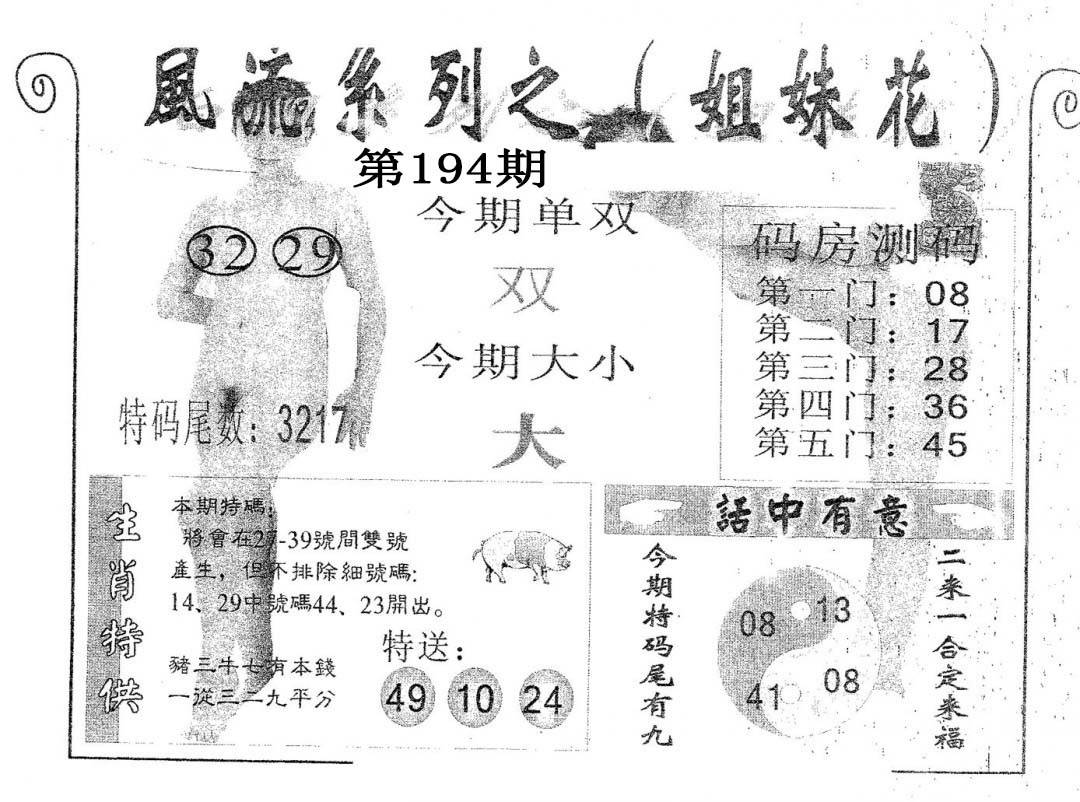 風流系列之（姐妹花）
第194期
今期单双
双
今期大小
大
32 29
特码尾数：3217
码房测码
第一门：08
第二门：17
第三门：28
第四门：36
第五门：45
生肖特供
本期特碼：
將會在27-39號間雙號
產生，但不排除細號碼：
14、29中號碼44、23開出。
豬三牛七有本錢
一從三二九平分
特送：
49 10 24
話中有意
今期特码尾有九
08 13
41 08
二来一合定来福